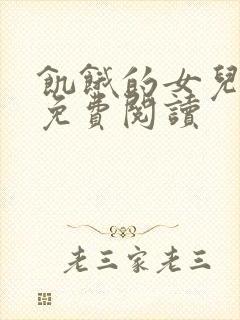 飢餓的女兒
免費閱讀
老三家老三